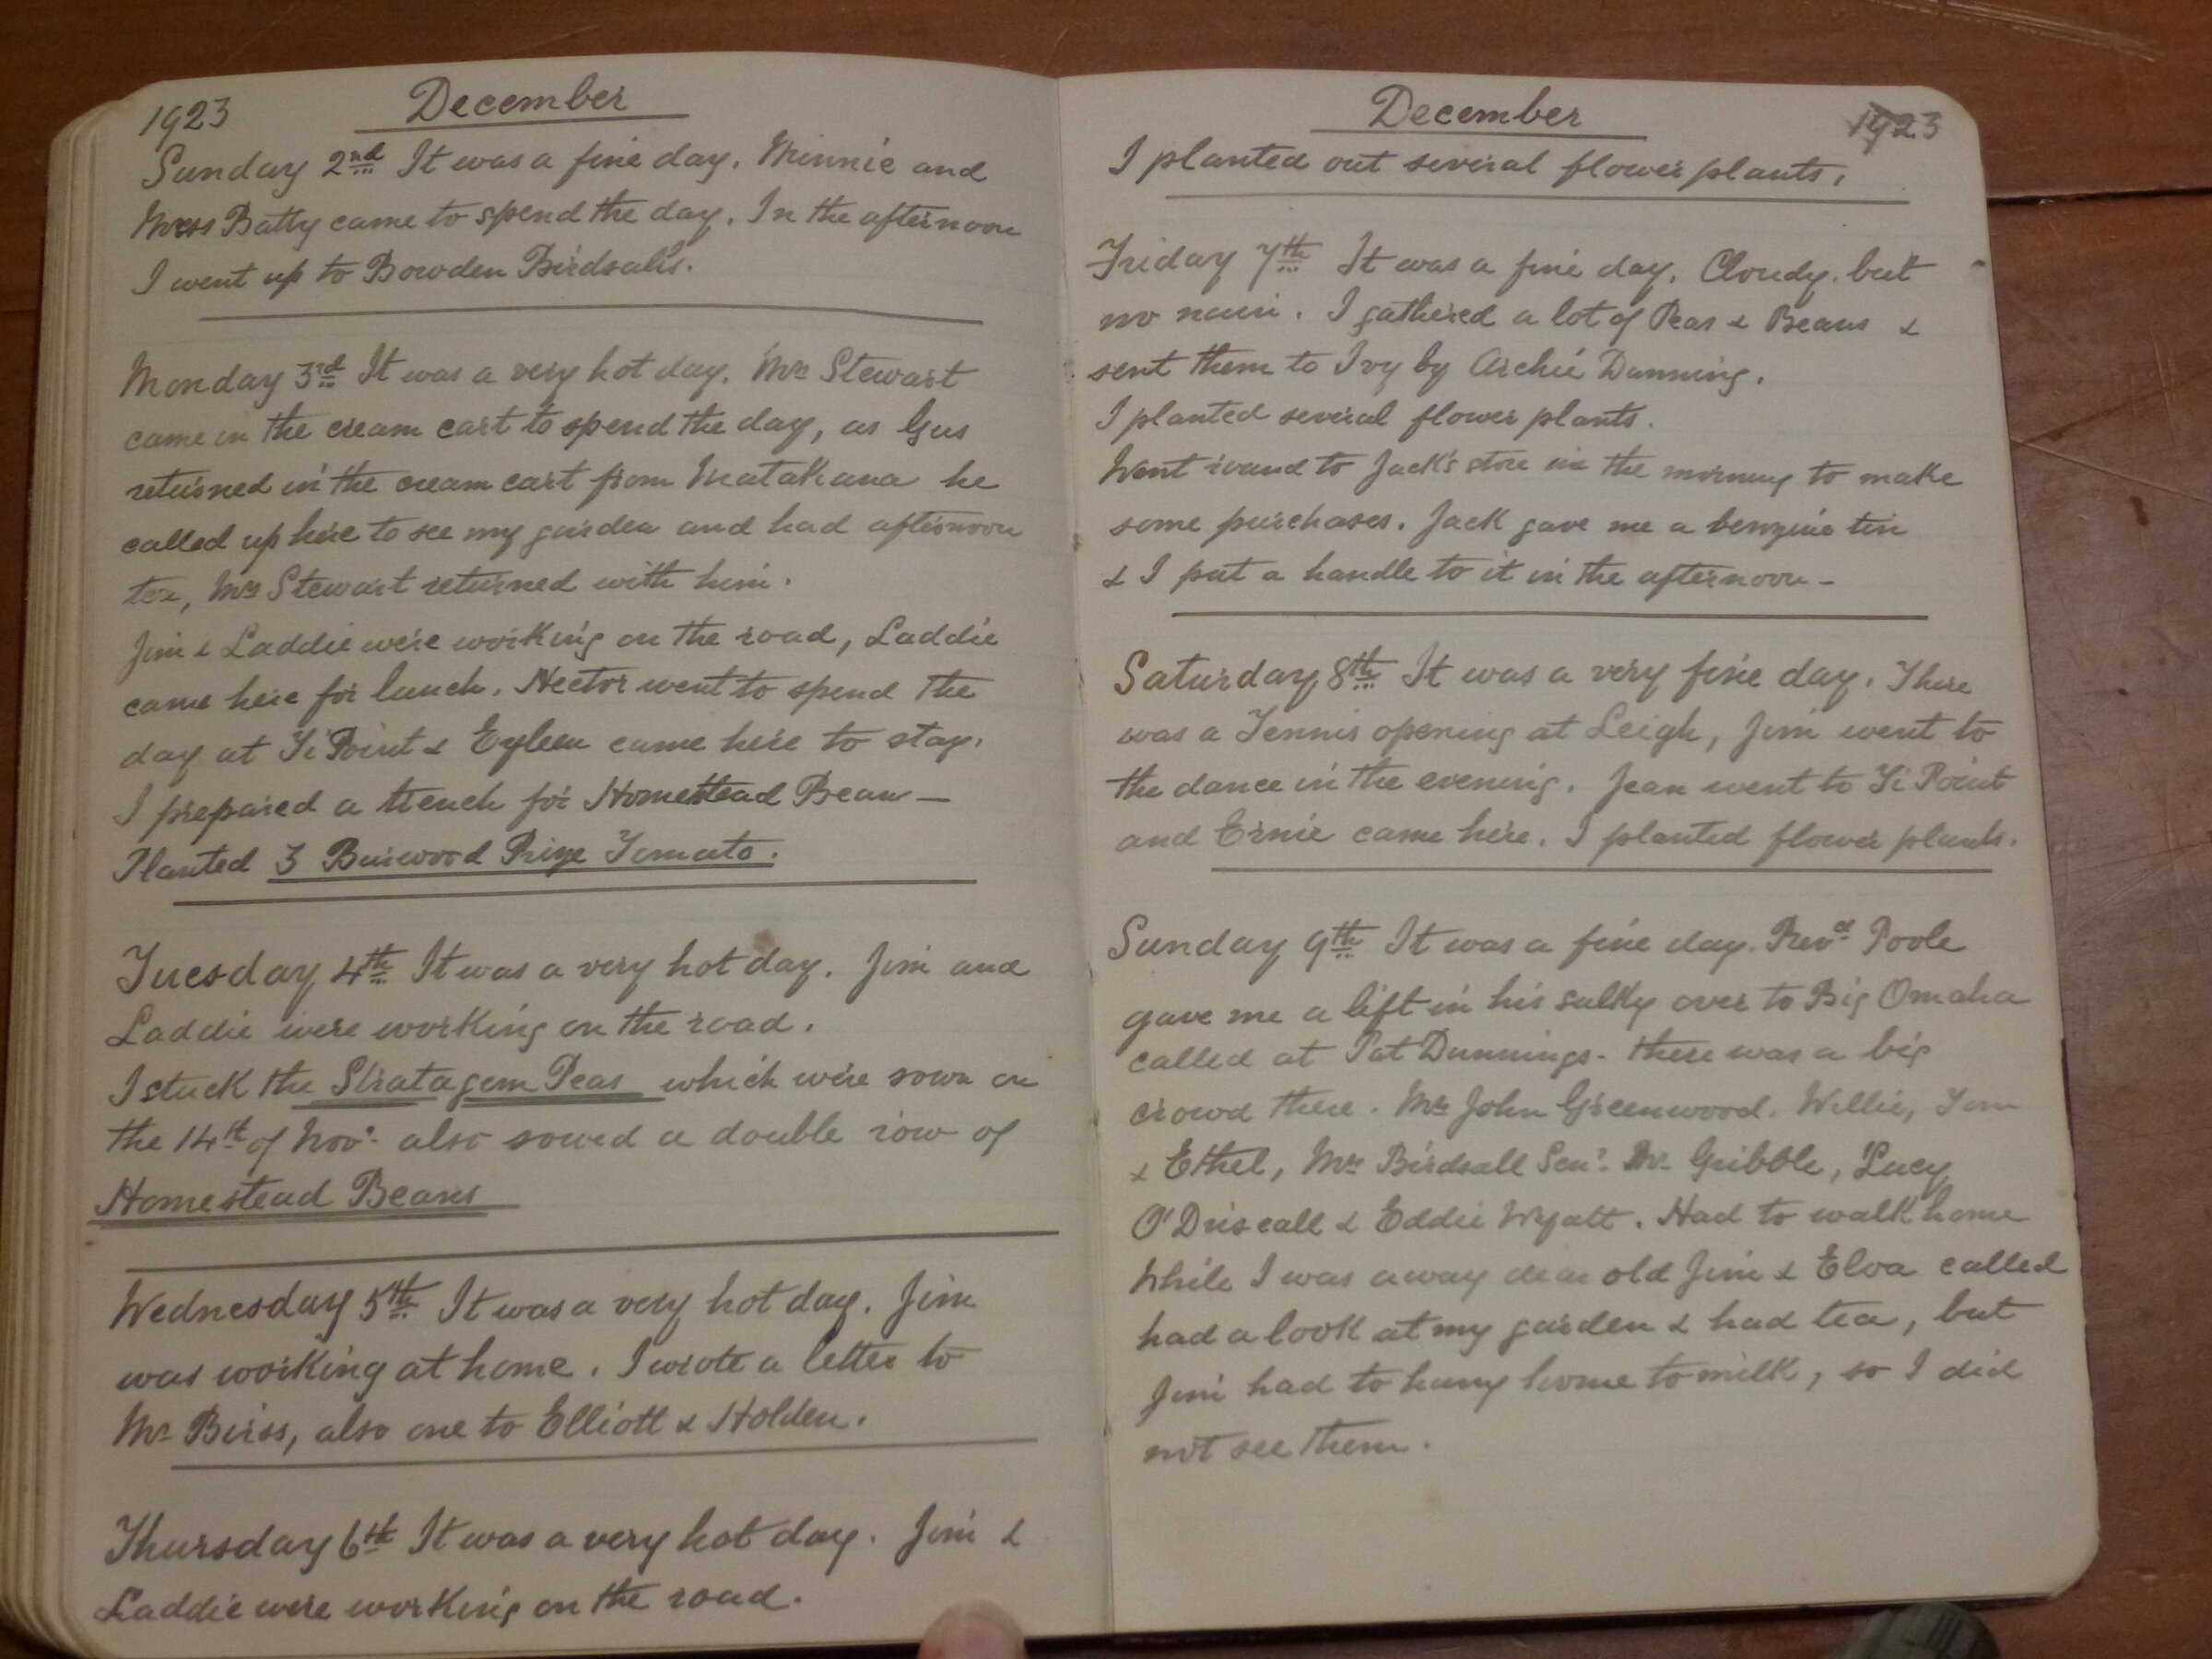 1923 December
Sunday 2nd It was a fine day. Minnie and
Batty came to spend the day. In the afternoon
I went up to Bowden Birdsall's.
Monday 3rd It was a very hot day. Mrs Stewart
came in the cream cart to spend the day, as Gus
returned in the cream cart from Matakana he
called up here to see my garden and had afternoon
tea, Mrs Stewart returned with him.
Jim & Laddie were working on the road, Laddie
came here for lunch. Hector went to spend the
day at Ti Point & Eyleen came here to stay.
I prepared a trench for Homestead Beans —
Planted 3 Burwood Prize Tomato.
Tuesday 4th It was a very hot day. Jim and
Laddie were working on the road.
I stuck the Stratagem Peas which were sown on
the 14th of Novr. also sowed a double row of
Homestead Beans
Wednesday 5th It was a very hot day. Jim
was working at home. I wrote a letter to
Mr Birss, also one to Elliott & Holden.
Thursday 6th It was a very hot day. Jim &
Laddie were working on the road.
December 1923
I planted out several flower plants.
Friday 7th It was a fine day. Cloudy. but
no rain. I gathered a lot of Peas & Beans &
sent them to Ivy by Archie Dunning.
I planted several flower plants.
Went round to Jack's store in the morning to make
some purchases. Jack gave me a benzine tin
& I put a handle to it in the afternoon -
Saturday 8th It was a very fine day. There
was a Tennis opening at Leigh, Jim went to
the dance in the evening. Jean went to Ti Point
and Ernie came here. I planted flower plants.
Sunday 9th It was a fine day. Revd Poole
gave me a lift in his sulky over to Big Omaha
called at Pat Dunnings - there was a big
crowd there. Mr John Greenwood. Willie, Tom
& Ethel, Mrs Birdsall Senr. Mr Gribble, Lucy
O'Driscall & Eddie Wyatt. Had to walk home
While I was away dear old Jim & Elva called
had a look at my garden & had tea, but
Jim had to hurry home to milk, so I did
not see them.